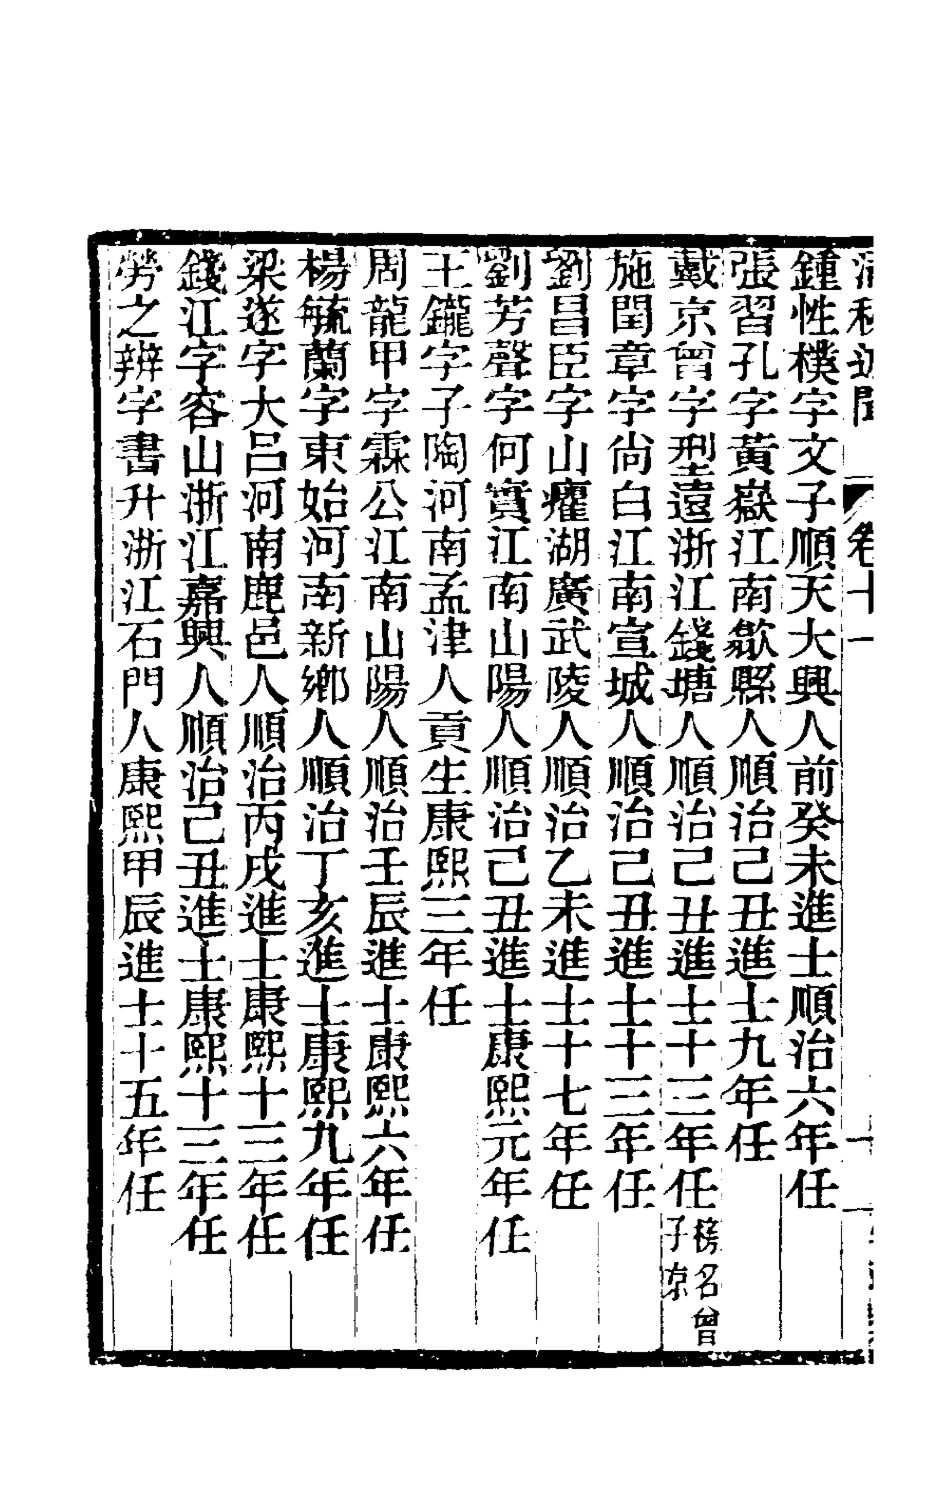 卷十一
鍾性樸字文子順天大興人前癸未進士順治六年任
張習孔字黃嶽江南歙縣人順治己丑進士九年任
戴京曾字型遠浙江錢塘人順治己丑進士十三年任榜名曾子京
施閏章字尚白江南宣城人順治己丑進士十三年任
劉昌臣字山癯湖廣武陵人順治乙未進士十七年任
劉芳聲字何實江南山陽人順治己丑進士康熙元年任
王鑨字子陶河南孟津人貢生康熙三年任
周龍甲字霖公江南山陽人順治壬辰進士康熙六年任
楊毓蘭字東始河南新鄉人順治丁亥進士康熙九年任
梁遂字大呂河南鹿邑人順治丙戌進士康熙十三年任
錢江字容山浙江嘉興人順治己丑進士康熙十三年任
勞之辨字書升浙江石門人康熙甲辰進士十五年任